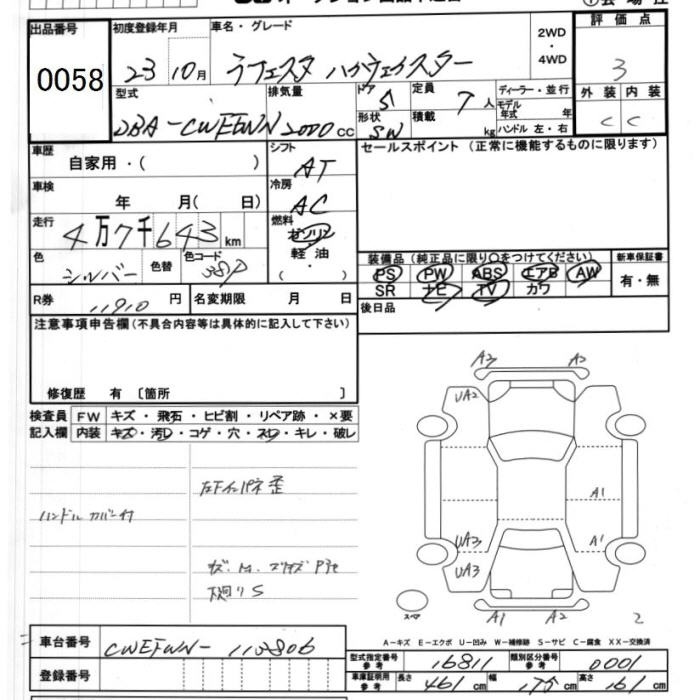 出品番号
0058
初度登録年月
23 10月
車名・グレード
ラフェスタ ハイウェイスター
2WD
・
4WD
評価点
3
型式
DBA-CWEFWN
排気量
2000 cc
ドア
5
形状
SW
定員
7 人
積載
kg
ディーラー・並行
モデル年式 年
ハンドル 左・右
外装 内装
C C
車歴
自家用・( )
車検
年 月( 日)
走行
4万7千643km
色
シルバー
色替
色コード
38P
シフト
AT
冷房
AC
燃料
ガソリン
軽油
・
( )
セールスポイント (正常に機能するものに限ります)
装備品 (純正品に限り○をつけてください)
PS PW ABS エアB AW
SR ナビ TV カワ
新車保証書
有・無
R券 11910 円
名変期限 月 日
後日品
注意事項申告欄(不具合内容等は具体的に記入して下さい)
修復歴 有 〔箇所 〕
検査員記入欄
FW キズ・飛石・ヒビ割・リペア跡・×要
内装 キズ・汚れ・コゲ・穴・スレ・キレ・破レ
ハンドルカバー付
左下インパネ歪
下廻りS
A2 A2
UA2
A1
UA3 A1
UA3
A1 A2
スペア
2
A-キズ E-エクボ U-凹み W-補修跡 S-サビ C-腐食 XX-交換済
車台番号
CWEFWN-113806
登録番号
型式指定番号 参考 16811
類別区分番号 参考 0001
車庫証明用 参考
長さ 461 cm
幅 175 cm
高さ 161 cm